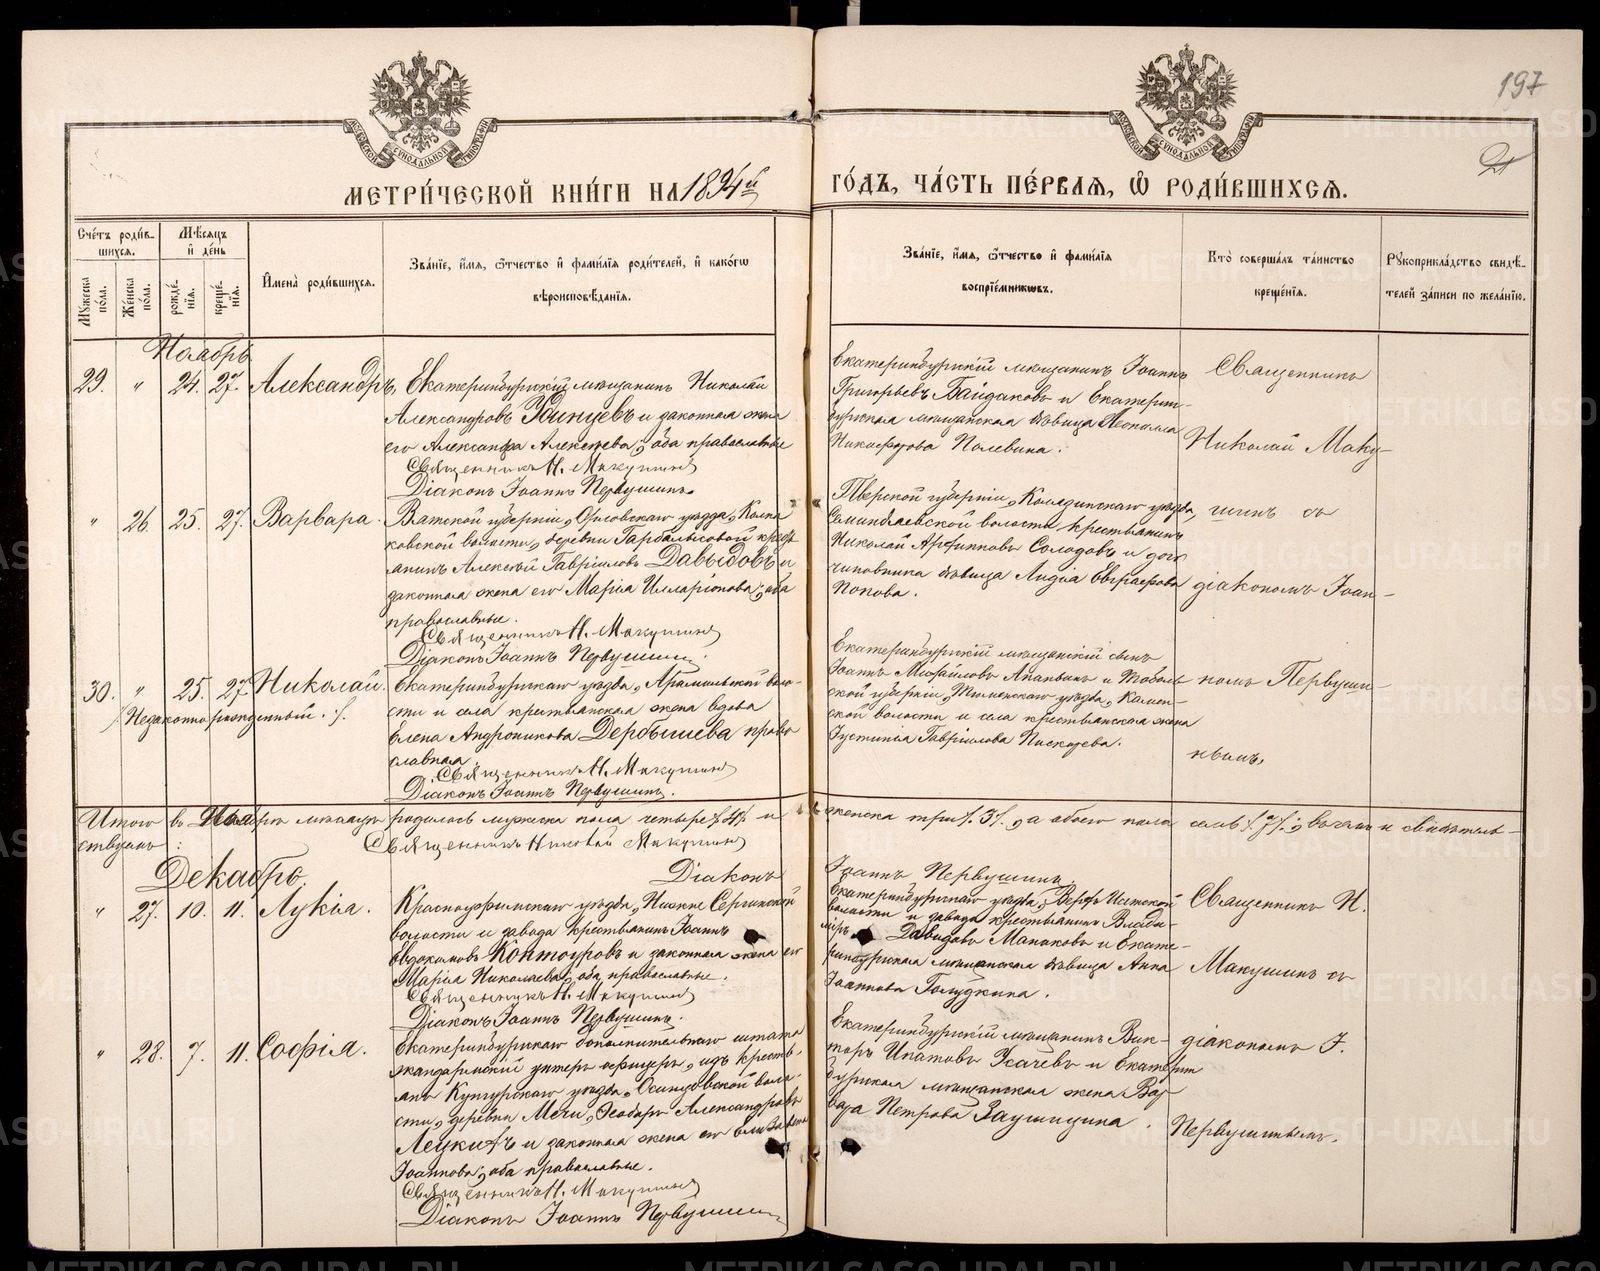 197
МЕТРИ́ЧЕСКОЙ КНИ́ГИ НА 1894й ГО́ДЪ, ЧА́СТЬ ПЕ́РВАЯ, Ѽ РОДИ́ВШИХСЯ.
МОСКОВСКОЙ СУНОДАЛЬНОЙ ТИПОГРАФІИ
МОСКОВСКОЙ СУНОДАЛЬНОЙ ТИПОГРАФІИ
Сче́тъ роди́в-
шихся.
Мѣ́сяцъ
и҆ де́нь
Му́жеска по́ла.
Же́нска по́ла.
рожде́-
нїѧ.
креще́-
нїѧ.
И҆мена̀ роди́вшихся.
Зва́нїе, и҆́мѧ, ѻ҆́тчество и҆ фами́лїѧ роди́телей, и҆ како́гѡ
вѣроисповѣ́данїѧ.
Зва́нїе, и҆́мѧ, ѻ҆́тчество и҆ фами́лїѧ
воспрїе́мникѡвъ.
Кто̀ соверша́лъ та́инство
креще́нїѧ.
Рꙋкоприкла́дство свидѣ́-
телей за́писи по жела́нїю.
Ноябрь
29. " 24. 27. Александръ,
Екатеринбургскій мѣщанинъ Николай
Александровъ Удинцевъ и законная жена
его Александра Алексѣева; оба православные
Священникъ Н. Макушинъ
Діаконъ Іоаннъ Первушинъ.
Екатеринбургскій мѣщанинъ Іоаннъ
Григорьевъ Байдаковъ и Екатерин-
бургская мѣщанская дѣвица
Никифорова Полевина.
Священникъ
Николай Маку-
" 26. 25. 27. Варвара.
Вятской губерніи, Орловскаго уѣзда,
ковской волости, деревни крестья-
янинъ Алексѣй Гавріиловъ Давыдовъ и
законная жена его Марія Илларіонова; оба
православные.
Священникъ Н. Макушинъ
Діаконъ Іоаннъ Первушинъ.
Тверской губерніи, уѣзда,
волости крестьянинъ
Николай Солодовъ и дочь
чиновника дѣвица Лидія Евграфова
Попова.
шинъ съ
діакономъ Іоан-
30. " 25. 27. Николай.
/Незаконнорожденный./.
Екатеринбургскаго уѣзда, Арамильской воло-
сти и села крестьянская жена вдова
Елена Андроникова Дербышева право-
славная.
Священникъ Н. Макушинъ
Діаконъ Іоаннъ Первушинъ.
Екатеринбургскій мѣщанскій сынъ
Іоаннъ Михайловъ Ананьинъ и Тоболь-
ской губерніи, Тюменскаго уѣзда, Камен-
ской волости и села крестьянская жена
Іустинія Гавріилова Пискарева.
номъ Первуши-
нымъ,
Итого въ Ноябрѣ мѣсяцѣ родилось мужеска пола четыре /4/ и женска три /3/, а обоего пола семь /7/; въ чемъ и свидѣтель-
ствуемъ:
Священникъ Николай Макушинъ
Діаконъ Іоаннъ Первушинъ.
Декабрь
" 27. 10. 11. Лукія.
Красноуфимскаго уѣзда, Нижне Сергинской
волости и завода крестьянинъ Іоаннъ
Евдокимовъ Контоуровъ и законная жена его
Марія Николаева; оба православные.
Священникъ Н. Макушинъ
Діаконъ Іоаннъ Первушинъ.
Екатеринбургскаго уѣзда, Верхъ Исетской
волости и завода крестьянинъ Влади-
міръ Давидовъ Манаковъ и Екате-
ринбургская мѣщанская дѣвица Анна
Іоаннова Голудкина.
Священникъ Н.
Макушинъ съ
" 28. 7. 11. Софія.
Екатеринбургскаго дополнительнаго штата
жандармскій унтеръ офицеръ, изъ кресть-
янъ Кунгурскаго уѣзда, Осинцовской воло-
сти, деревни Мечи, Ѳеодоръ Александровъ
Лецкихъ и законная жена его Елизавета
Іоаннова; оба православные.
Священникъ Н. Макушинъ
Діаконъ Іоаннъ Первушинъ
Екатеринбургскій мѣщанинъ Вик-
торъ Ипатовъ Усачевъ и Екатерин-
бургская мѣщанская жена Вар-
вара Петрова Заушицина.
діакономъ І.
Первушинымъ.
METRIKI.GASO-URAL.RU